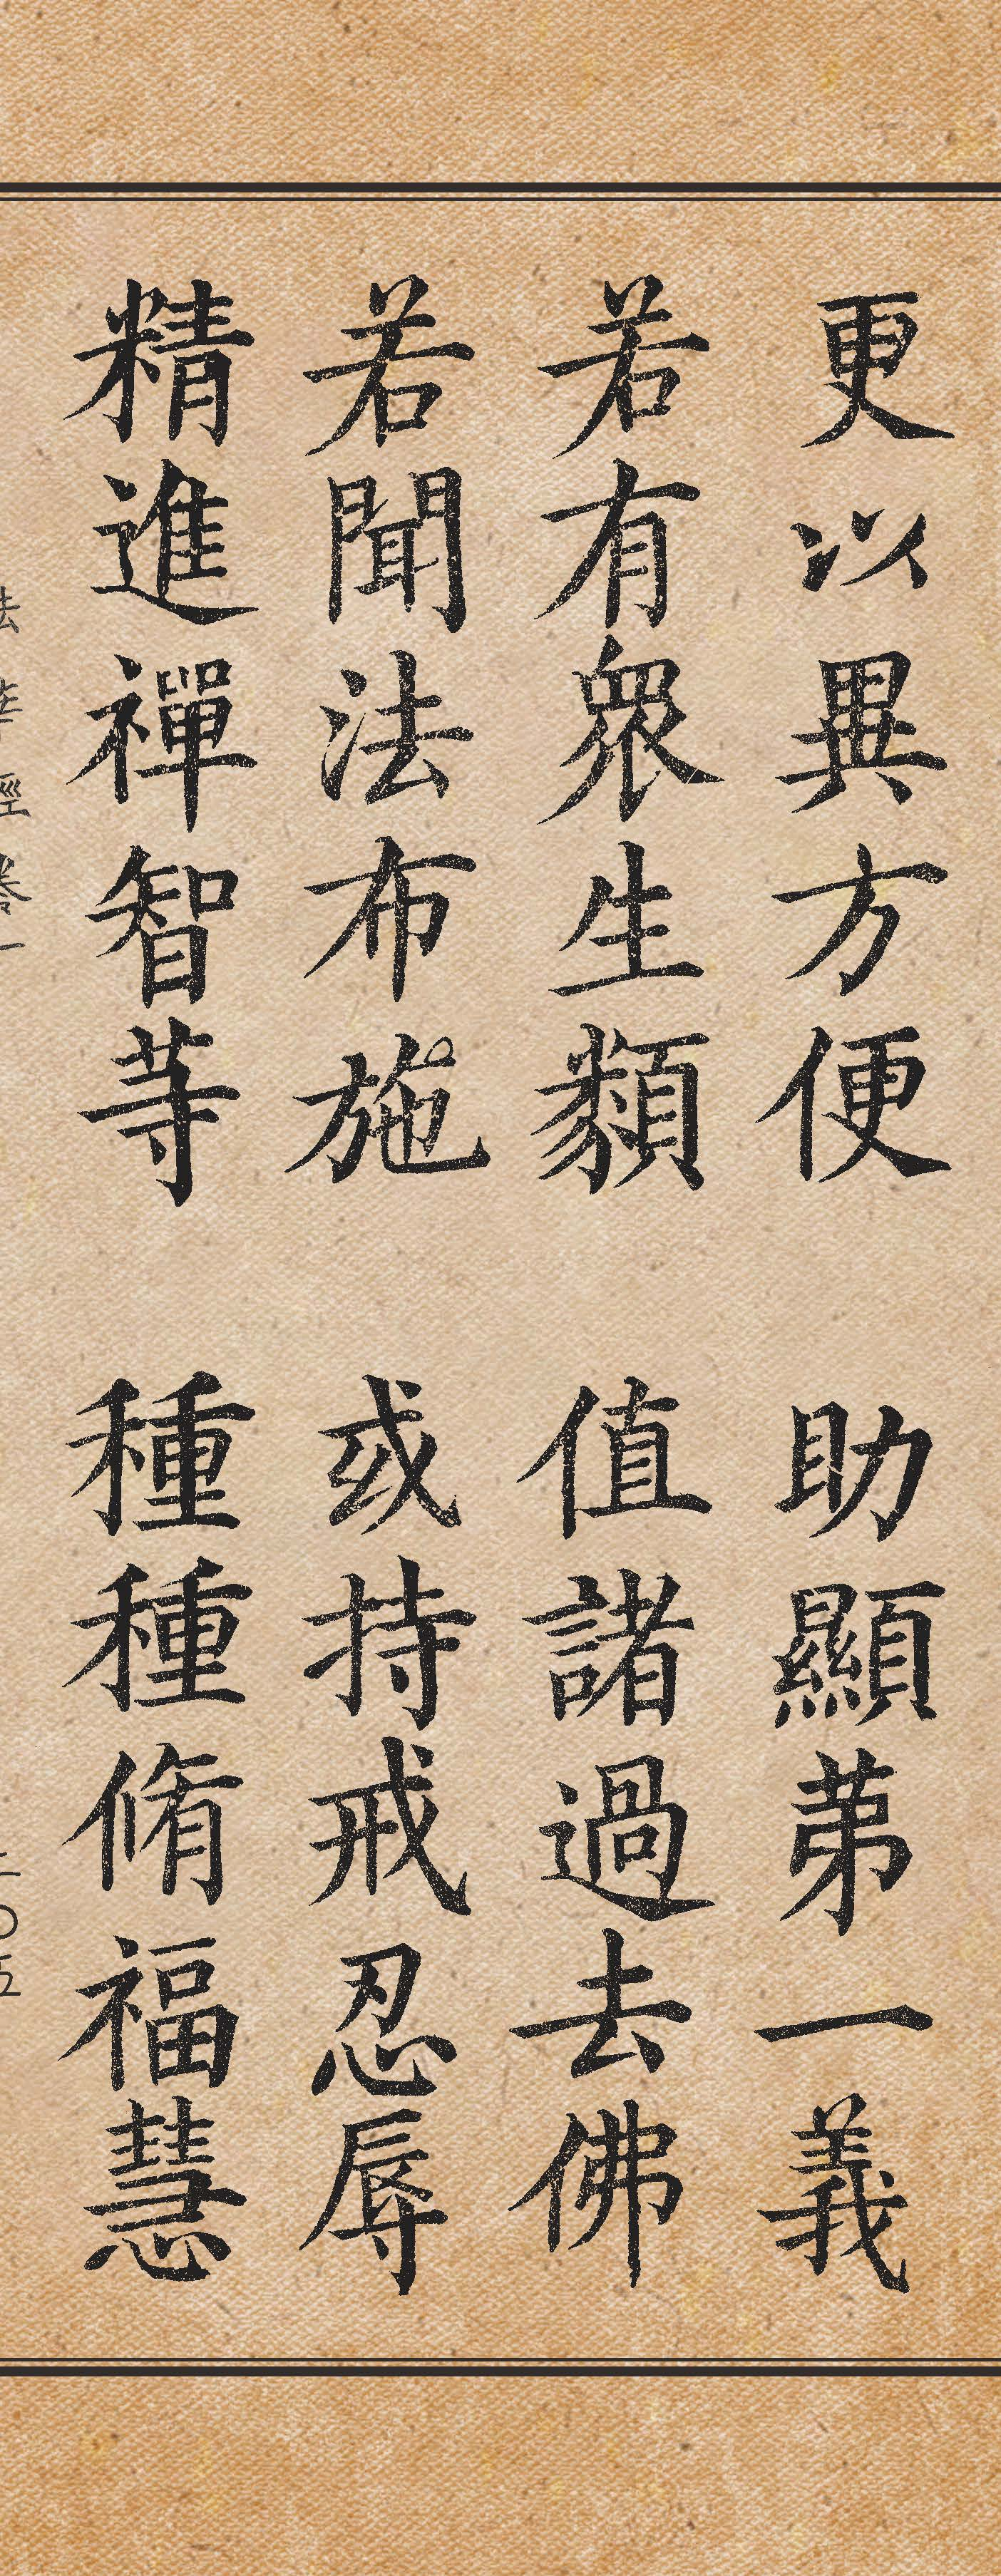 更以異方便　助顯第一義
若有眾生類　值諸過去佛
若聞法布施　或持戒忍辱
精進禪智等　種種脩福慧
法華經卷一
二〇五